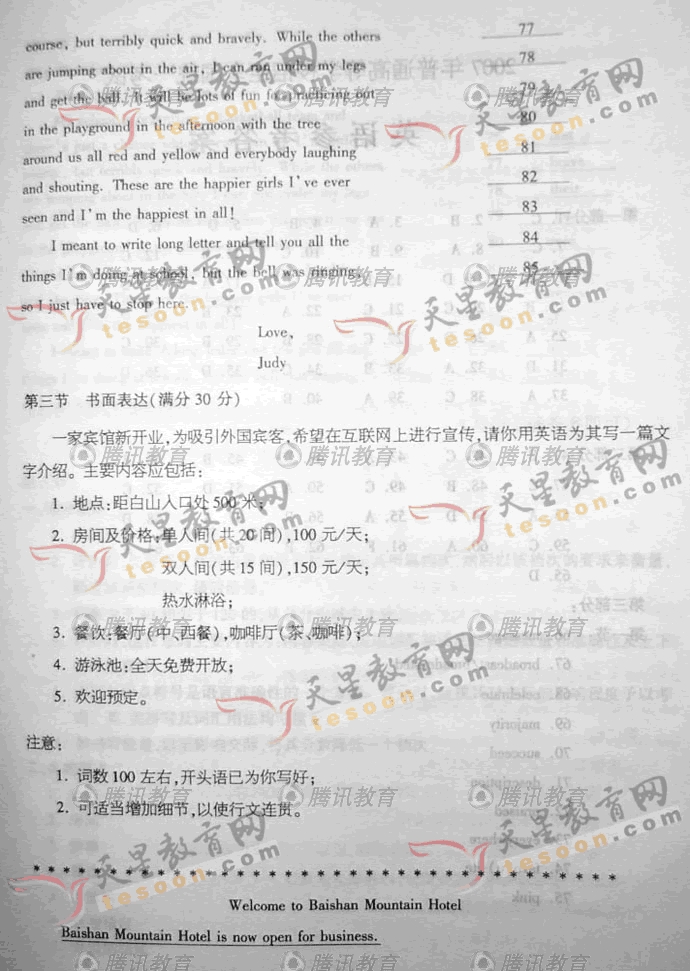 course, but terribly quick and bravely. While the others 77
are jumping about in the air, I can run under my legs 78
and get the ball. It will be lots of fun for practicing out 79
in the playground in the afternoon with the tree 80
around us all red and yellow and everybody laughing 81
and shouting. These are the happier girls I've ever 82
seen and I'm the happiest in all! 83
I meant to write long letter and tell you all the 84
things I'm doing at school, but the bell was ringing, 85
so I just have to stop here.
Love,
Judy
第三节 书面表达(满分 30 分)
一家宾馆新开业,为吸引外国宾客,希望在互联网上进行宣传,请你用英语为其写一篇文
字介绍。主要内容应包括:
1. 地点:距白山入口处 500 米;
2. 房间及价格:单人间(共 20 间),100 元/天;
双人间(共 15 间),150 元/天;
热水淋浴;
3. 餐饮:餐厅(中、西餐),咖啡厅(茶、咖啡);
4. 游泳池:全天免费开放;
5. 欢迎预定。
注意:
1. 词数 100 左右,开头语已为你写好;
2. 可适当增加细节,以使行文连贯。
Welcome to Baishan Mountain Hotel
Baishan Mountain Hotel is now open for business.
天星教育网
tesoon.com
腾讯教育